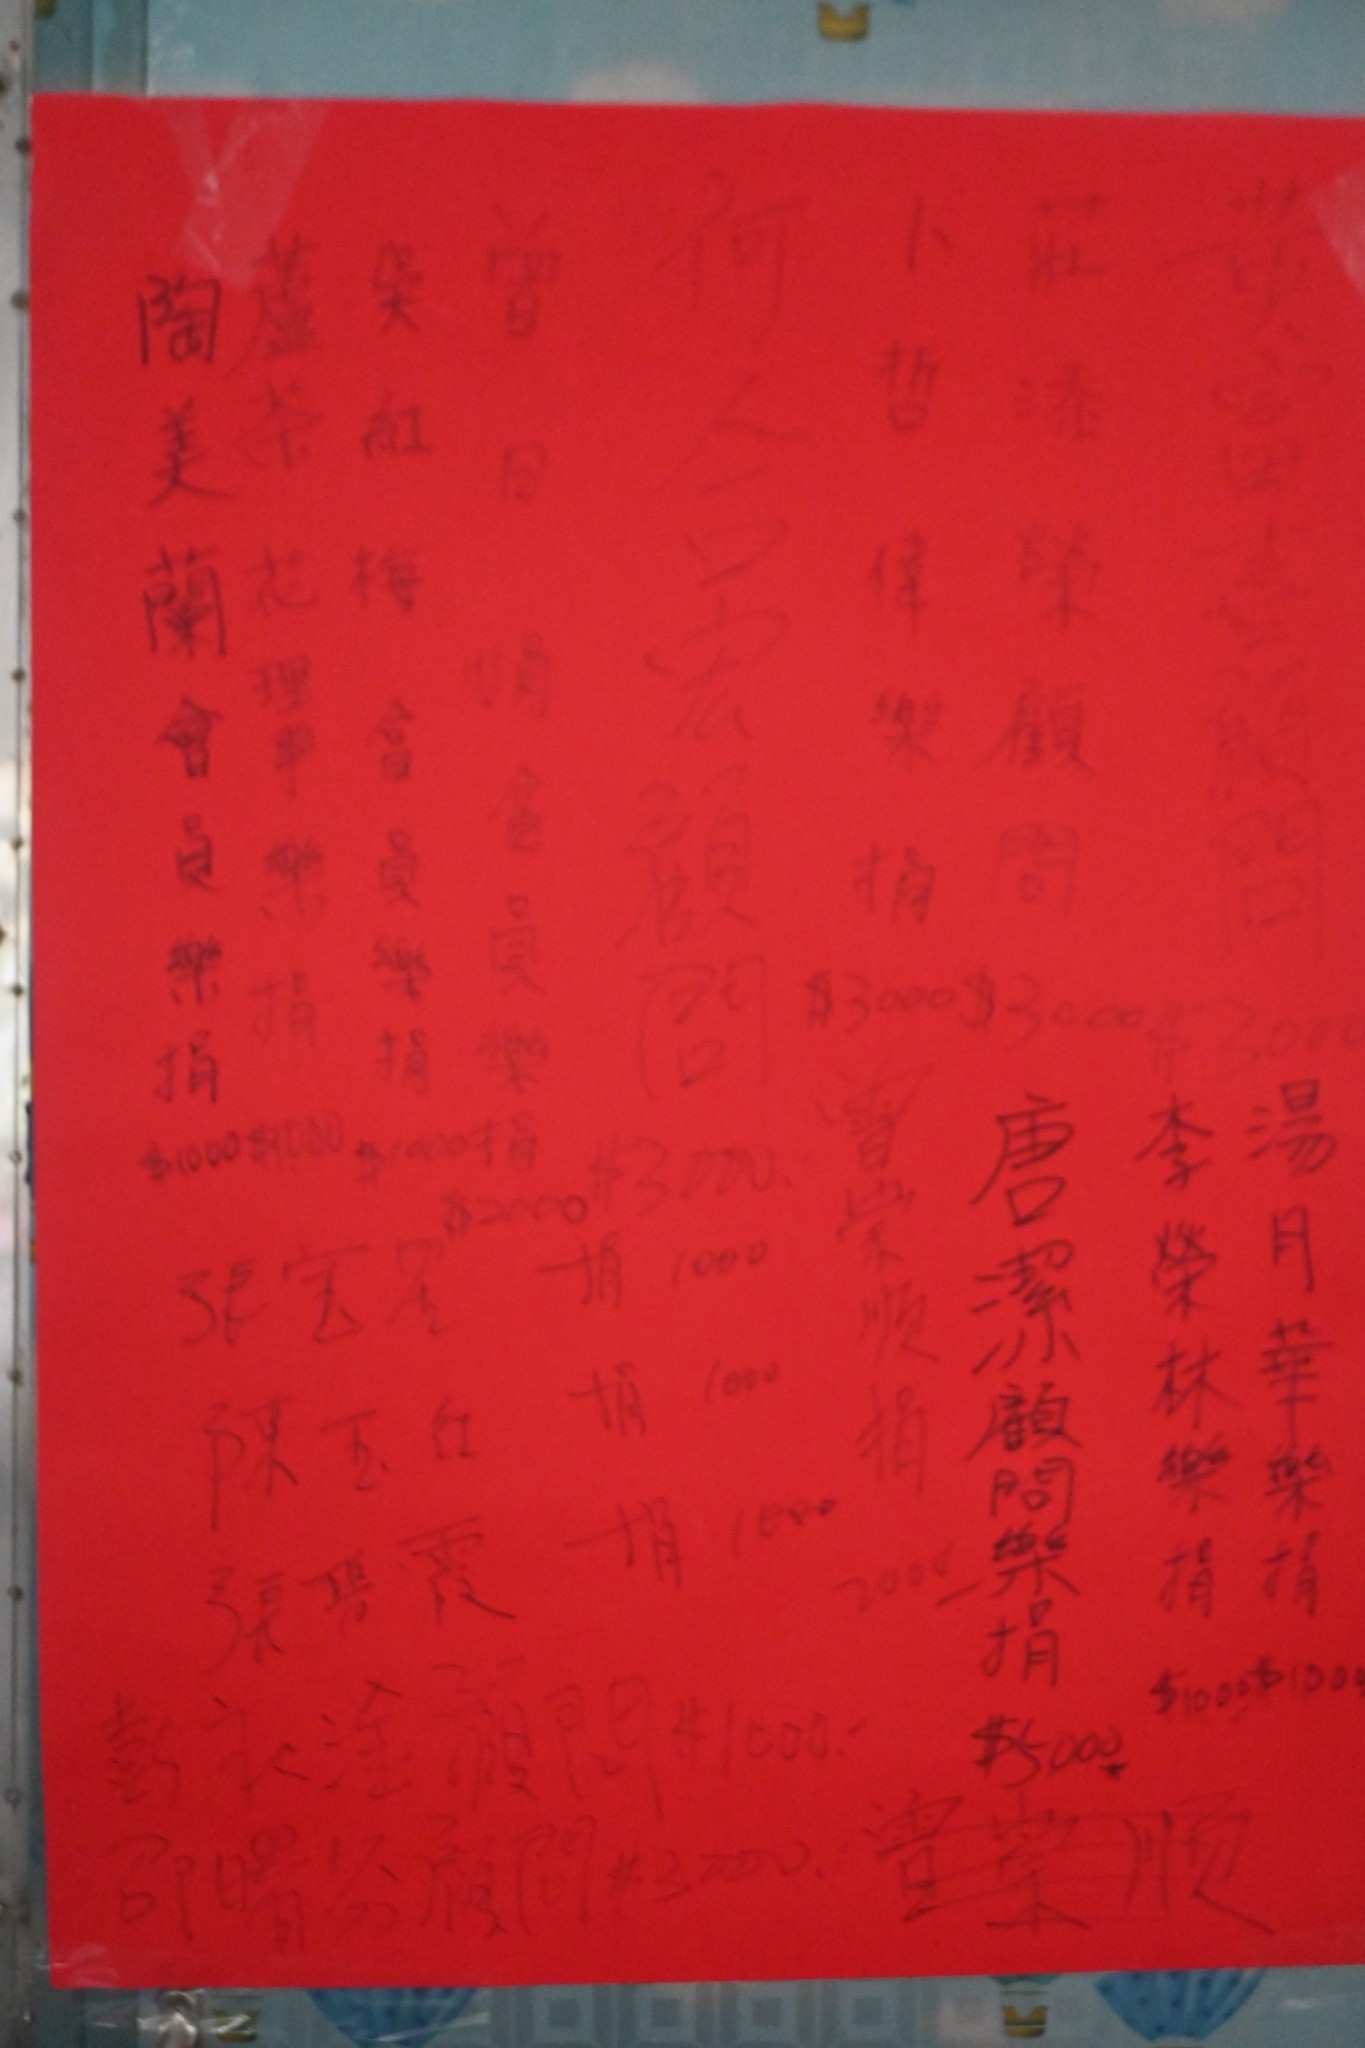 黃富喜顧問 $3000
莊添榮顧問 $3000
卜哲偉樂捐 $3000
何 顧問 $3000.
曾日娟會員樂捐 $2000
紅梅會員樂捐 $1000
花理事樂捐 $1000
陶美蘭會員樂捐 $1000
湯月華樂捐 $1000
李榮林樂捐 $1000
唐潔顧問樂捐 $5000
曾榮順捐 2000
張 捐 1000
陳玉紅 捐 1000
張碧霞 捐 1000
彭永淦顧問 $1000.
邵曙芬顧問 $3000.
曾榮順